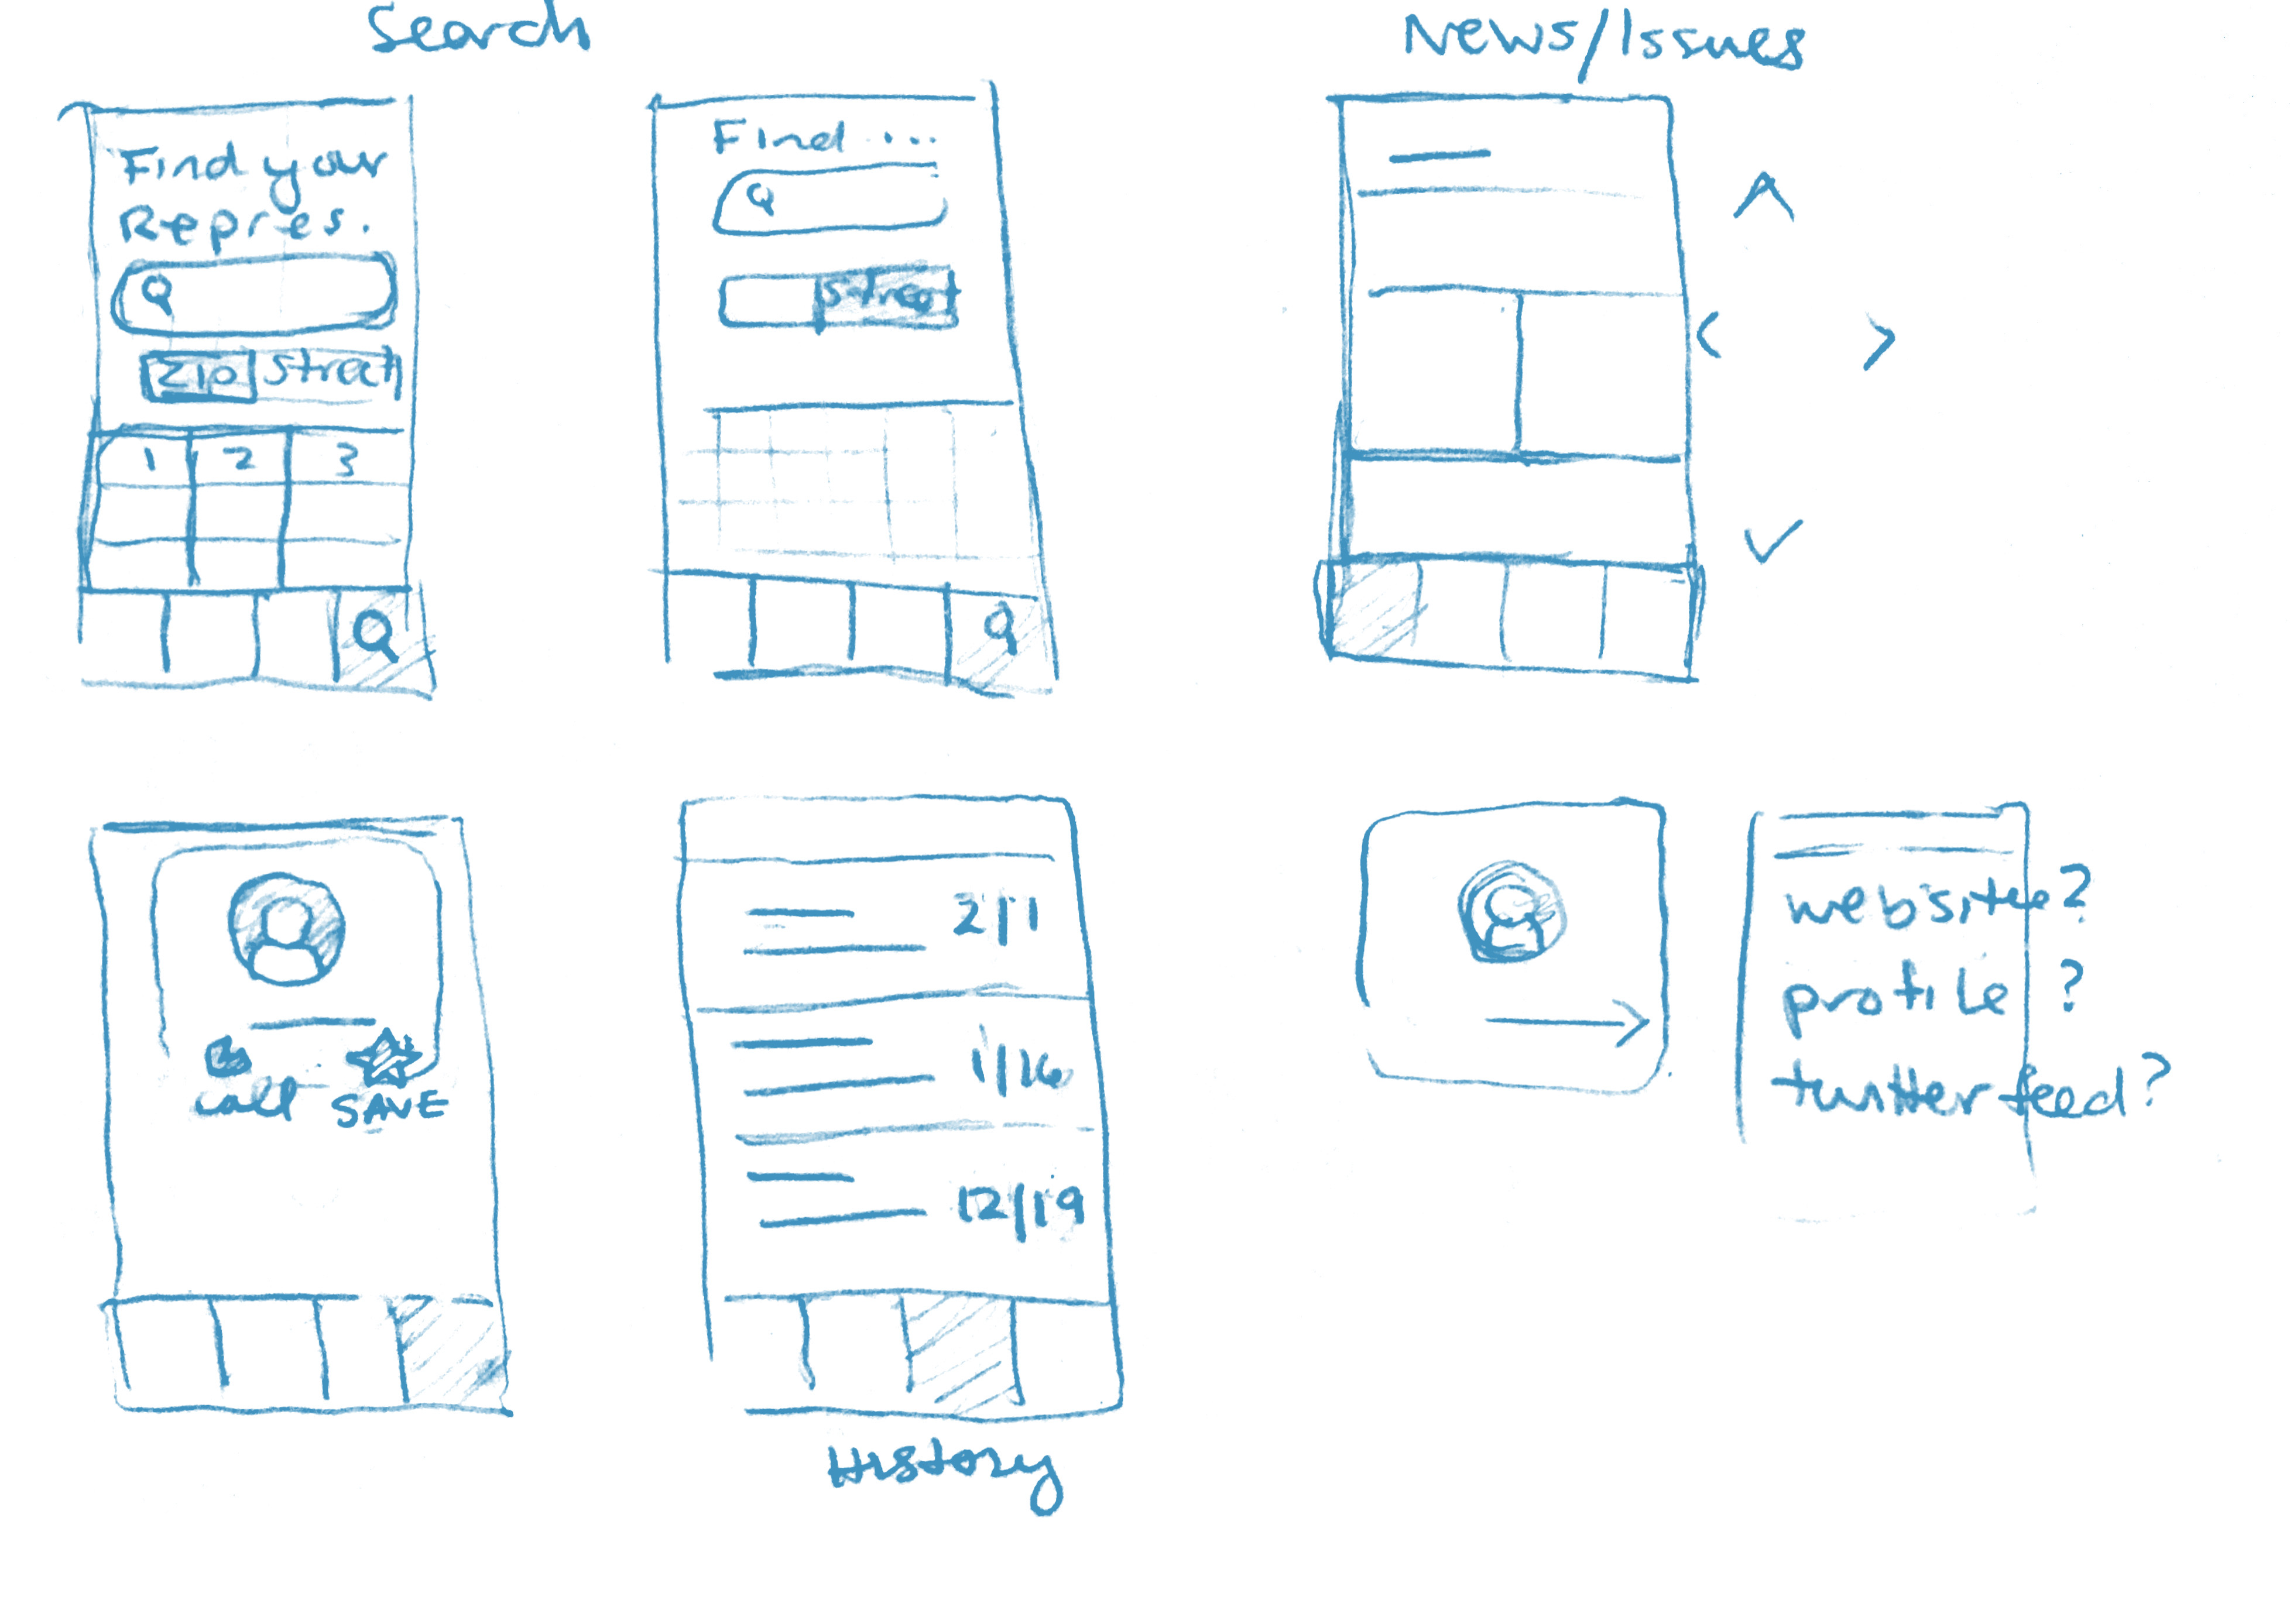 Search
News/Issues
Find your
Repres.
Zip Street
1 2 3
Find ...
Street
call SAVE
2/1
1/16
12/19
History
website?
profile ?
twitter feed?